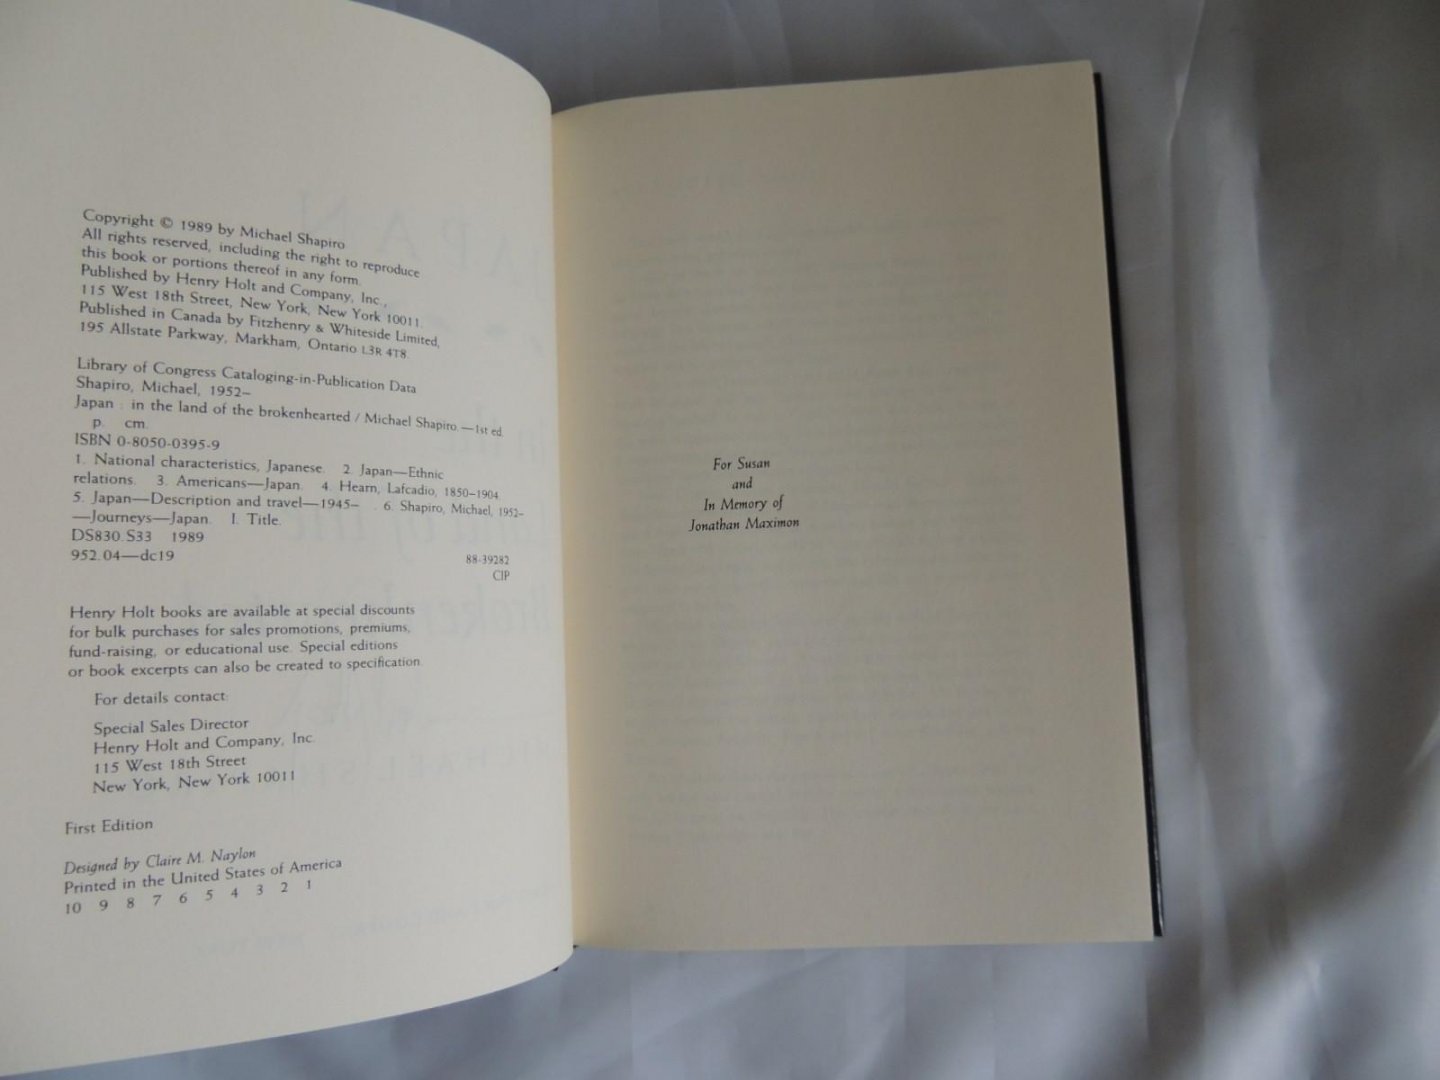 Copyright © 1989 by Michael Shapiro
All rights reserved, including the right to reproduce
this book or portions thereof in any form.
Published by Henry Holt and Company, Inc.,
115 West 18th Street, New York, New York 10011.
Published in Canada by Fitzhenry & Whiteside Limited,
195 Allstate Parkway, Markham, Ontario L3R 4T8.
Library of Congress Cataloging-in-Publication Data
Shapiro, Michael, 1952–
Japan : in the land of the brokenhearted / Michael Shapiro.—1st ed.
p. cm.
ISBN 0-8050-0395-9
1. National characteristics, Japanese. 2. Japan—Ethnic
relations. 3. Americans—Japan. 4. Hearn, Lafcadio, 1850–1904.
5. Japan—Description and travel—1945– . 6. Shapiro, Michael, 1952–
—Journeys—Japan. I. Title.
DS830.S33 1989
952.04—dc19 88-39282
CIP
Henry Holt books are available at special discounts
for bulk purchases for sales promotions, premiums,
fund-raising, or educational use. Special editions
or book excerpts can also be created to specification.
For details contact:
Special Sales Director
Henry Holt and Company, Inc.
115 West 18th Street
New York, New York 10011
First Edition
Designed by Claire M. Naylon
Printed in the United States of America
10 9 8 7 6 5 4 3 2 1
For Susan
and
In Memory of
Jonathan Maximon